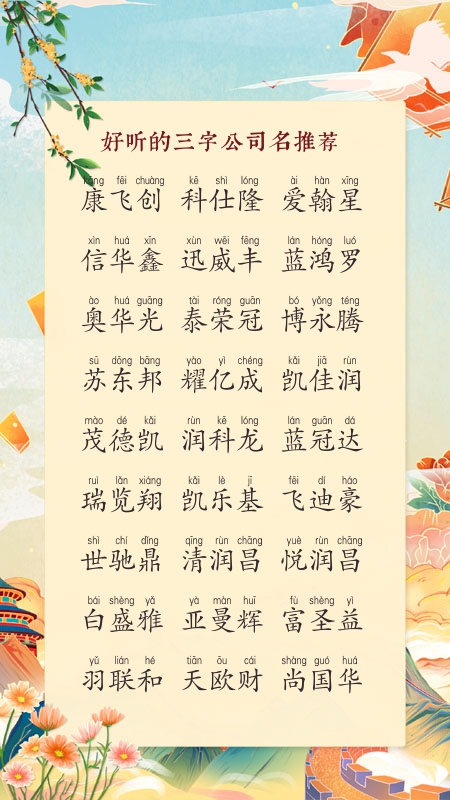 好听的三字公司名推荐
kāng fēi chuàng kē shì lóng ài hàn xīng
康飞创 科仕隆 爱翰星
xìn huá xīn xùn wēi fēng lán hóng luó
信华鑫 迅威丰 蓝鸿罗
ào huá guāng tài róng guān bó yǒng téng
奥华光 泰荣冠 博永腾
sū dōng bāng yào yì chéng kǎi jiā rùn
苏东邦 耀亿成 凯佳润
mào dé kǎi rùn kē lóng lán guān dá
茂德凯 润科龙 蓝冠达
ruì lǎn xiáng kǎi lè jī fēi dí háo
瑞览翔 凯乐基 飞迪豪
shì chí dǐng qīng rùn chāng yuè rùn chāng
世驰鼎 清润昌 悦润昌
bái shèng yǎ yà màn huī fù shèng yì
白盛雅 亚曼辉 富圣益
yǔ lián hé tiān ōu cái shàng guó huá
羽联和 天欧财 尚国华